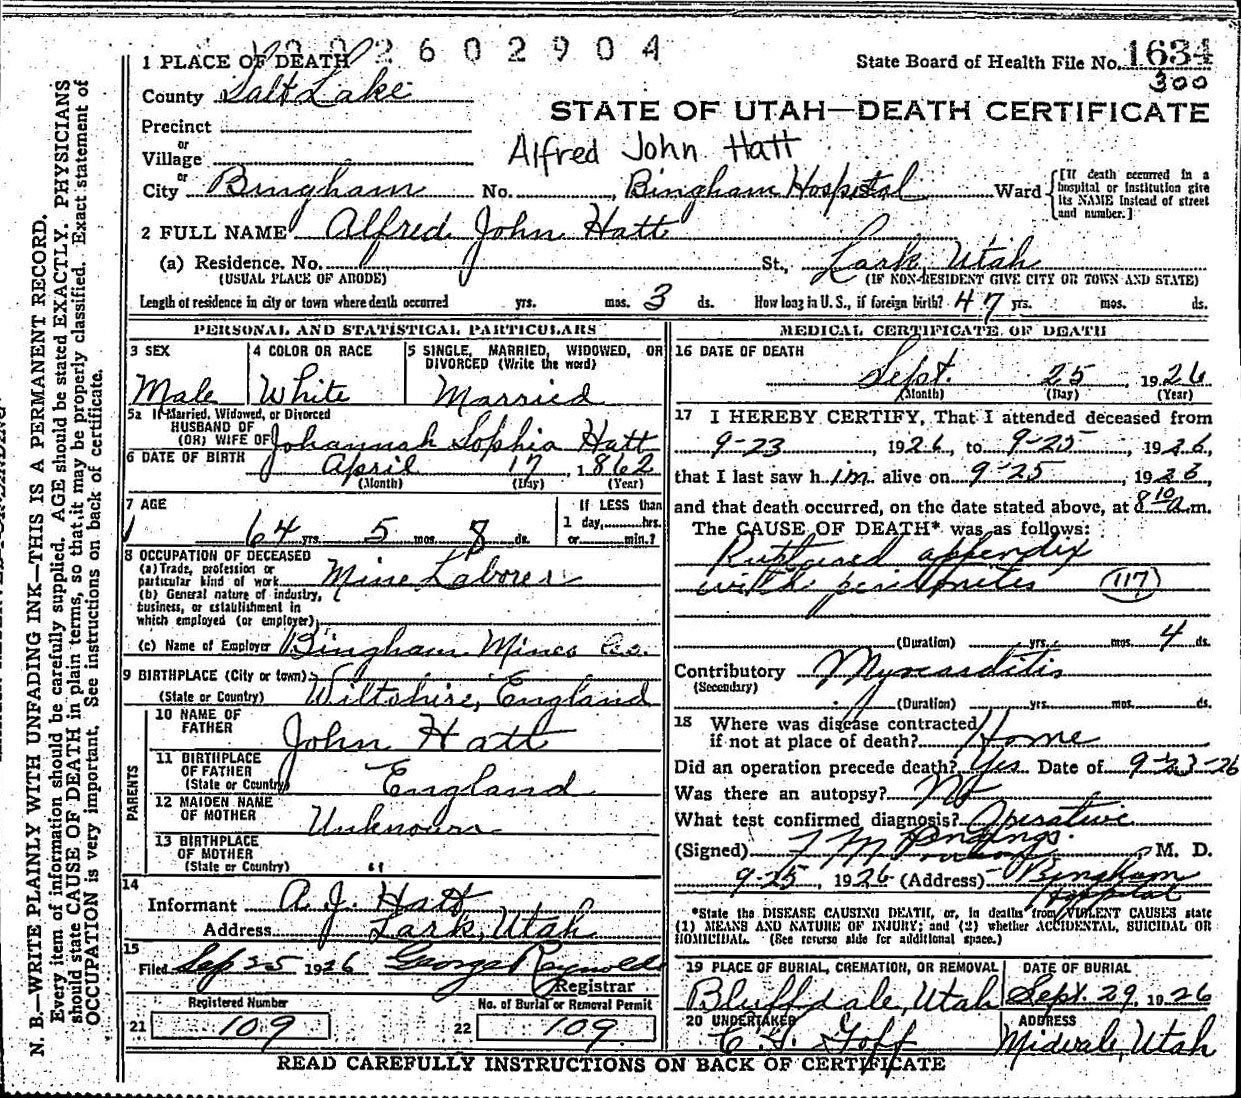 2602904
1 PLACE OF DEATH
State Board of Health File No. 1634
300
County Salt Lake
STATE OF UTAH—DEATH CERTIFICATE
Precinct
or
Alfred John Hatt
Village
or
City Bingham No. Bingham Hospital Ward [If death occurred in a hospital or institution give its NAME instead of street and number.]
2 FULL NAME Alfred John Hatt
(a) Residence. No. St., Lark, Utah
(USUAL PLACE OF ABODE) (IF NON-RESIDENT GIVE CITY OR TOWN AND STATE)
Length of residence in city or town where death occurred yrs. mos. 3 ds. How long in U. S., if foreign birth? 47 yrs. mos. ds.
PERSONAL AND STATISTICAL PARTICULARS
3 SEX
Male
4 COLOR OR RACE
White
5 SINGLE, MARRIED, WIDOWED, OR
DIVORCED (Write the word)
Married
5a If Married, Widowed, or Divorced
HUSBAND OF
(OR) WIFE OF Johannah Sophia Hatt
6 DATE OF BIRTH April 17, 1862
(Month) (Day) (Year)
7 AGE
64 yrs. 5 mos. 8 ds.
If LESS than
1 day, hrs.
or min.?
8 OCCUPATION OF DECEASED
(a) Trade, profession or
particular kind of work Mine Laborer
(b) General nature of industry,
business, or establishment in
which employed (or employer)
(c) Name of Employer Bingham Mines Co.
9 BIRTHPLACE (City or town)
(State or Country) Wiltshire, England
PARENTS
10 NAME OF
FATHER John Hatt
11 BIRTHPLACE
OF FATHER
(State or Country) England
12 MAIDEN NAME
OF MOTHER Unknown
13 BIRTHPLACE
OF MOTHER
(State or Country) "
14
Informant A. J. Hatt
Address Lark, Utah
15
Filed Sep 25 1926 George Reynolds
Registrar
Registered Number
21 109
No. of Burial or Removal Permit
22 109
MEDICAL CERTIFICATE OF DEATH
16 DATE OF DEATH
Sept. 25, 1926
(Month) (Day) (Year)
17 I HEREBY CERTIFY, That I attended deceased from
9-23, 1926, to 9-25, 1926,
that I last saw him alive on 9-25, 1926,
and that death occurred, on the date stated above, at 8 10 a.m.
The CAUSE OF DEATH* was as follows:
Ruptured appendix
with peritonites (117)
(Duration) yrs. mos. 4 ds.
Contributory Myocarditis
(Secondary)
(Duration) yrs. mos. ds.
18 Where was disease contracted
if not at place of death? Home
Did an operation precede death? Yes Date of 9-23-26
Was there an autopsy? No
What test confirmed diagnosis? Operative
(Signed) M. D.
9-25, 1926 (Address) Bingham
Hospital
*State the DISEASE CAUSING DEATH, or, in deaths from VIOLENT CAUSES state
(1) MEANS AND NATURE OF INJURY; and (2) whether ACCIDENTAL, SUICIDAL OR
HOMICIDAL. (See reverse side for additional space.)
19 PLACE OF BURIAL, CREMATION, OR REMOVAL
Bluffdale, Utah
DATE OF BURIAL
Sept. 29, 1926
20 UNDERTAKER
Goff
ADDRESS
Midvale, Utah
READ CAREFULLY INSTRUCTIONS ON BACK OF CERTIFICATE
N. B.—WRITE PLAINLY WITH UNFADING INK—THIS IS A PERMANENT RECORD.
Every item of information should be carefully supplied. AGE should be stated EXACTLY. PHYSICIANS
should state CAUSE OF DEATH in plain terms, so that it may be properly classified. Exact statement of
OCCUPATION is very important. See instructions on back of certificate.